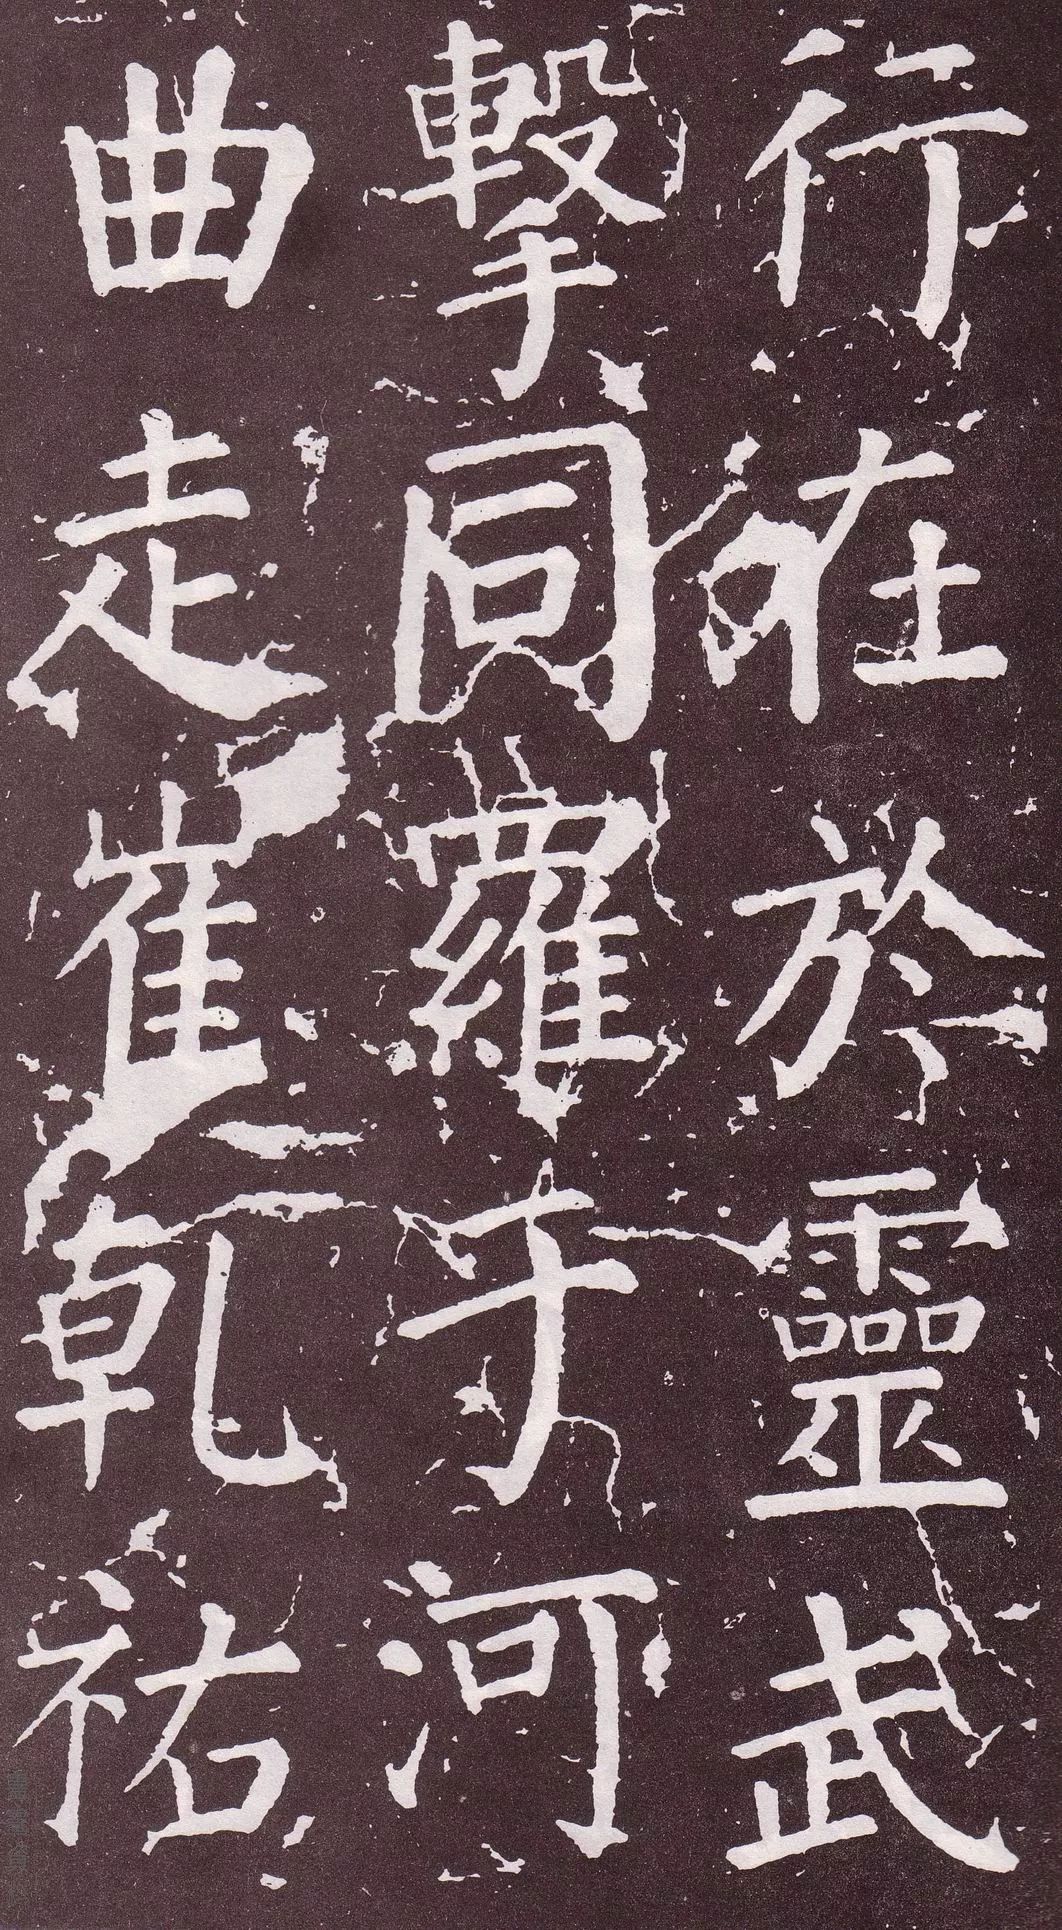 行在於靈武
擊同羅于河
曲走崔乾祐